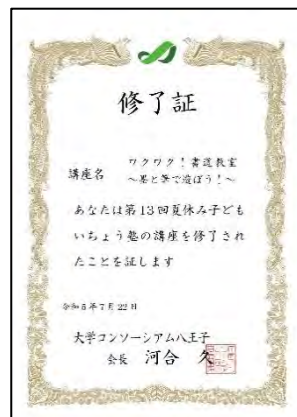 修了証
講座名
ワクワク！書道教室
～墨と筆で遊ぼう！～
あなたは第13回夏休み子ども
いちょう塾の講座を修了され
たことを証します
令和5年7月22日
大学コンソーシアム八王子
会長 河合 久